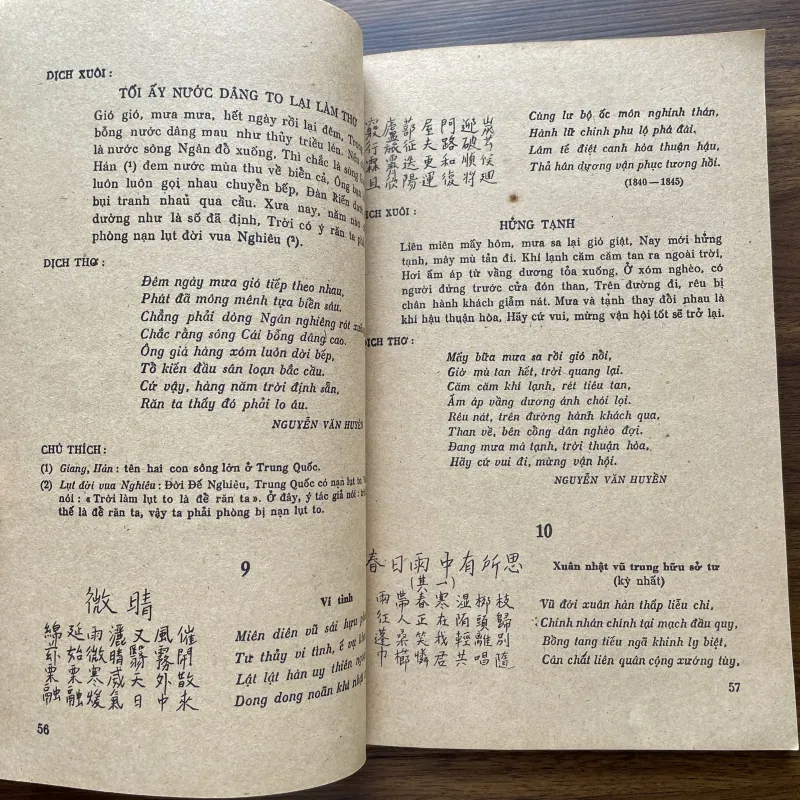 DỊCH XUÔI :
TỐI ẤY NƯỚC DÂNG TO LẠI LÀM THƠ
Gió gió, mưa mưa, hết ngày rồi lại đêm,
bỗng nước dâng mau như thủy triều lên.
là nước sông Ngân đổ xuống, Thì chắc là sông
Hán (¹) đem nước mùa thu về biển cả, Ông
luôn luôn gọi nhau chuyển bếp, Đàn kiến
bụi tranh nhau qua cầu. Xưa nay, năm nào
dường như là số đã định, Trời có ý răn ta
phòng nạn lụt đời vua Nghiêu (²).
DỊCH THƠ :
Đêm ngày mưa gió tiếp theo nhau,
Phút đã mỏng mênh tựa biển sâu.
Chẳng phải dòng Ngân nghiêng rót
Chắc rằng sông Cái bỗng dâng cao.
Ông già hàng xóm luôn dời bếp,
Tổ kiến đầu sân loạn bắc cầu.
Cứ vậy, hàng năm trời định sẵn,
Răn ta thấy đó phải lo âu.
NGUYỄN VĂN HUYỀN
CHÚ THÍCH :
(1) Giang, Hán : tên hai con sông lớn ở Trung Quốc.
(2) Lụt đời vua Nghiêu : Đời Đế Nghiêu, Trung Quốc có nạn lụt to
nói : « Trời làm lụt to là để răn ta ». Ở đây, ý tác giả nói :
thế là để răn ta, vậy ta phải phòng bị nạn lụt to.
9
微晴
Vi tình
綿延雨灑又風催
始微晴翳霧開
栗栗寒威天外散
融融煖氣日中來
Miên diên vũ sái hựu
Tư thủy vi tình, ế vụ
Lật lật hàn uy thiên
Dong dong noãn khí
56
窮廬蔀屋阿迎炭
行旅征夫路破苔
霖霽迭更和順候
且欣陽運復將迴
Cùng lư bộ ốc môn nghinh thán,
Hành lữ chinh phu lộ phá đài,
Lâm tễ điệt canh hòa thuận hậu,
Thả hân dương vận phục tương hồi.
(1840 — 1845)
DỊCH XUÔI :
HỬNG TẠNH
Liên miên mấy hôm, mưa sa lại gió giật, Nay mới hửng
tạnh, mây mù tản đi. Khí lạnh căm căm tan ra ngoài trời,
Hơi ấm áp từ vầng dương tỏa xuống, Ở xóm nghèo, có
người đứng trước cửa đón than, Trên đường đi, rêu bị
chân hành khách giẫm nát. Mưa và tạnh thay đổi nhau là
khí hậu thuận hòa, Hãy cứ vui, mừng vận hội tốt sẽ trở lại.
DỊCH THƠ :
Mấy bữa mưa sa rồi gió nồi,
Giờ mù tan hết, trời quang lại.
Căm căm khí lạnh, rét tiêu tan,
Ấm áp vầng dương ánh chói lọi.
Rêu nát, trên đường hành khách qua,
Than về, bên cổng dân nghèo đợi.
Đang mưa mà tạnh, trời thuận hòa,
Hãy cứ vui đi, mừng vận hội.
NGUYỄN VĂN HUYỀN
10
春日雨中有所思
(其一)
Xuân nhật vũ trung hữu sở tư
(kỳ nhất)
雨帶春寒湿柳枝
征人正在陌頭歸
蓬桑笑我輕離別
巾櫛憐君共唱隨
Vũ đới xuân hàn thấp liễu chi,
Chinh nhân chính tại mạch đầu quy,
Bồng tang tiếu ngã khinh ly biệt,
Cân chất liên quân cộng xướng tùy,
57